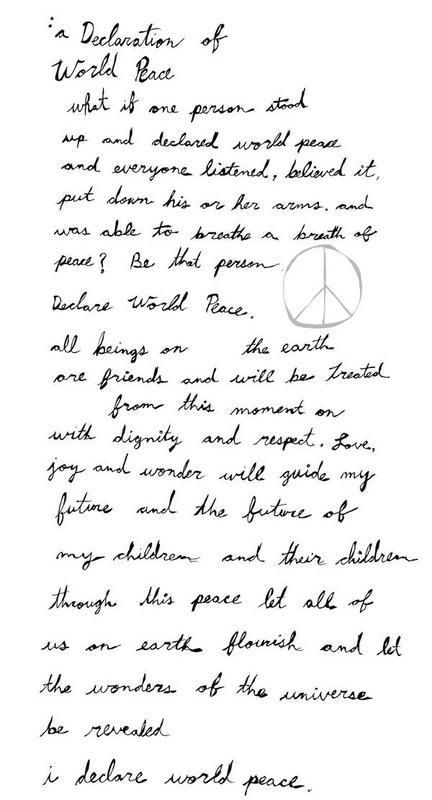 : a Declaration of
World Peace
what if one person stood
up and declared world peace
and everyone listened, believed it,
put down his or her arms. and
was able to breathe a breath of
peace? Be that person.
Declare World Peace.
all beings on the earth
are friends and will be treated
from this moment on
with dignity and respect. Love,
joy and wonder will guide my
future and the future of
my children and their children
through this peace let all of
us on earth flourish and let
the wonders of the universe
be revealed
i declare world peace.